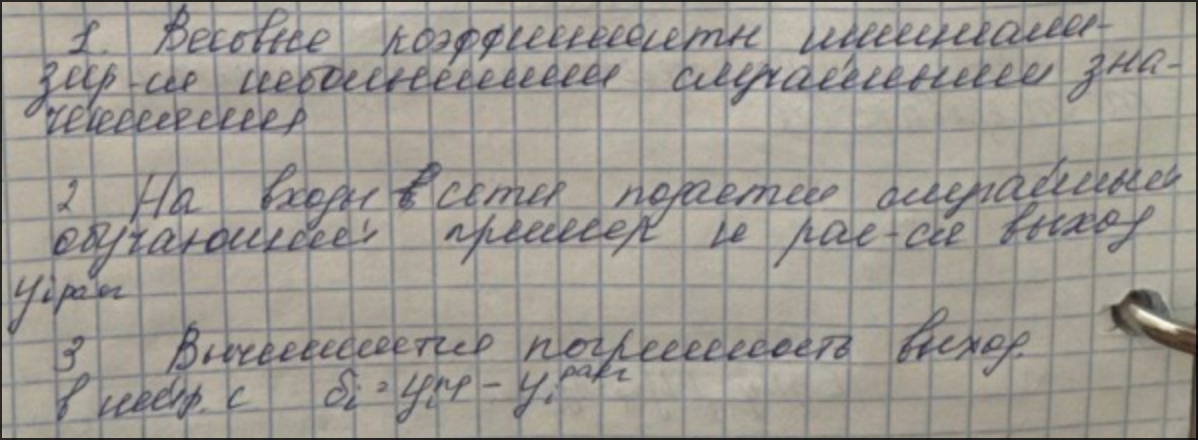 1. Весовые коэффициенты инициали-
зир-ся небольшими случайными зна-
чениями
2 На входы сети подается случайный
обучающий пример и рас-ся выход
yi расч
3 Вычисляется погрешность выход.
в нейр. с δi = yi пр - yi расч